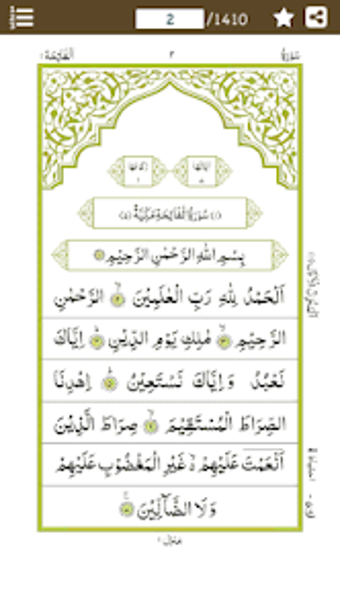 2 /1410
الفاتحة ١ ٢ سورة
(١) سُوْرَةُ الْفَاتِحَةِ مَكِّيَّةٌ (٥)
بِسْمِ اللهِ الرَّحْمٰنِ الرَّحِيْمِ
اَلْحَمْدُ لِلهِ رَبِّ الْعٰلَمِيْنَ الرَّحْمٰنِ
الرَّحِيْمِ مٰلِكِ يَوْمِ الدِّيْنِ اِيَّاكَ
نَعْبُدُ وَاِيَّاكَ نَسْتَعِيْنُ اِهْدِنَا
الصِّرَاطَ الْمُسْتَقِيْمَ صِرَاطَ الَّذِيْنَ
اَنْعَمْتَ عَلَيْهِمْ غَيْرِ الْمَغْضُوْبِ عَلَيْهِمْ
وَلَا الضَّآلِّيْنَ
منزل ١